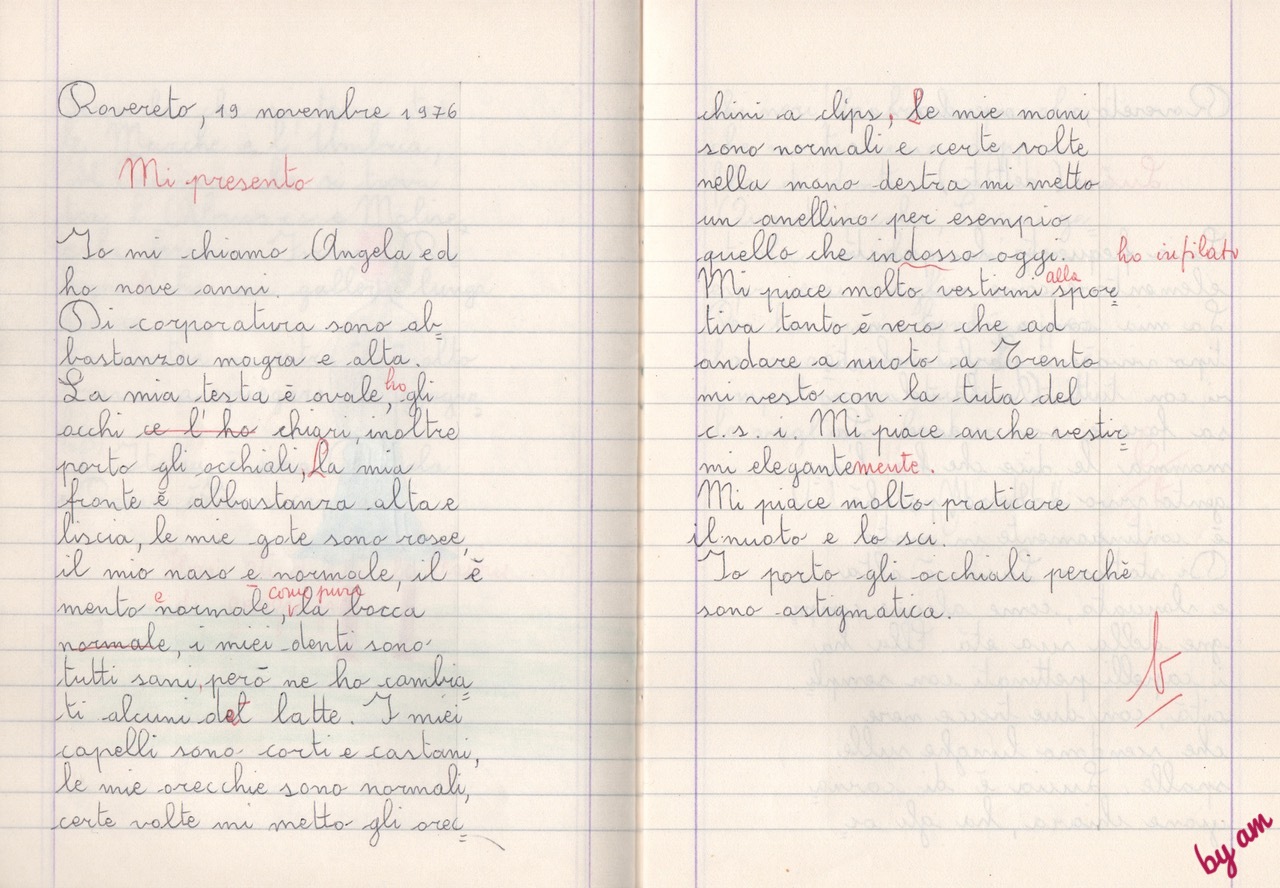 Rovereto, 19 novembre 1976
Mi presento
Io mi chiamo Angela ed
ho nove anni.
Di corporatura sono ab=
bastanza magra e alta.
La mia testa è ovale, ho gli
occhi ce l' ho chiari, inoltre
porto gli occhiali, La mia
fronte è abbastanza alta e
liscia, le mie gote sono rosee,
il mio naso e normale, il è
mento e normale, come pure la bocca
normale, i miei denti sono
tutti sani, però ne ho cambia=
ti alcuni del latte. I miei
capelli sono corti e castani,
le mie orecchie sono normali,
certe volte mi metto gli orec=
chini a clips. Le mie mani
sono normali e certe volte
nella mano destra mi metto
un anellino per esempio
quello che indosso oggi. ho infilato
Mi piace molto vestirmi alla spor=
tiva tanto è vero che ad
andare a nuoto a Trento
mi vesto con la tuta del
c. s. i. Mi piace anche vestir=
mi elegantemente.
Mi piace molto praticare
il nuoto e lo sci.
Io porto gli occhiali perchè
sono astigmatica.
b
by am